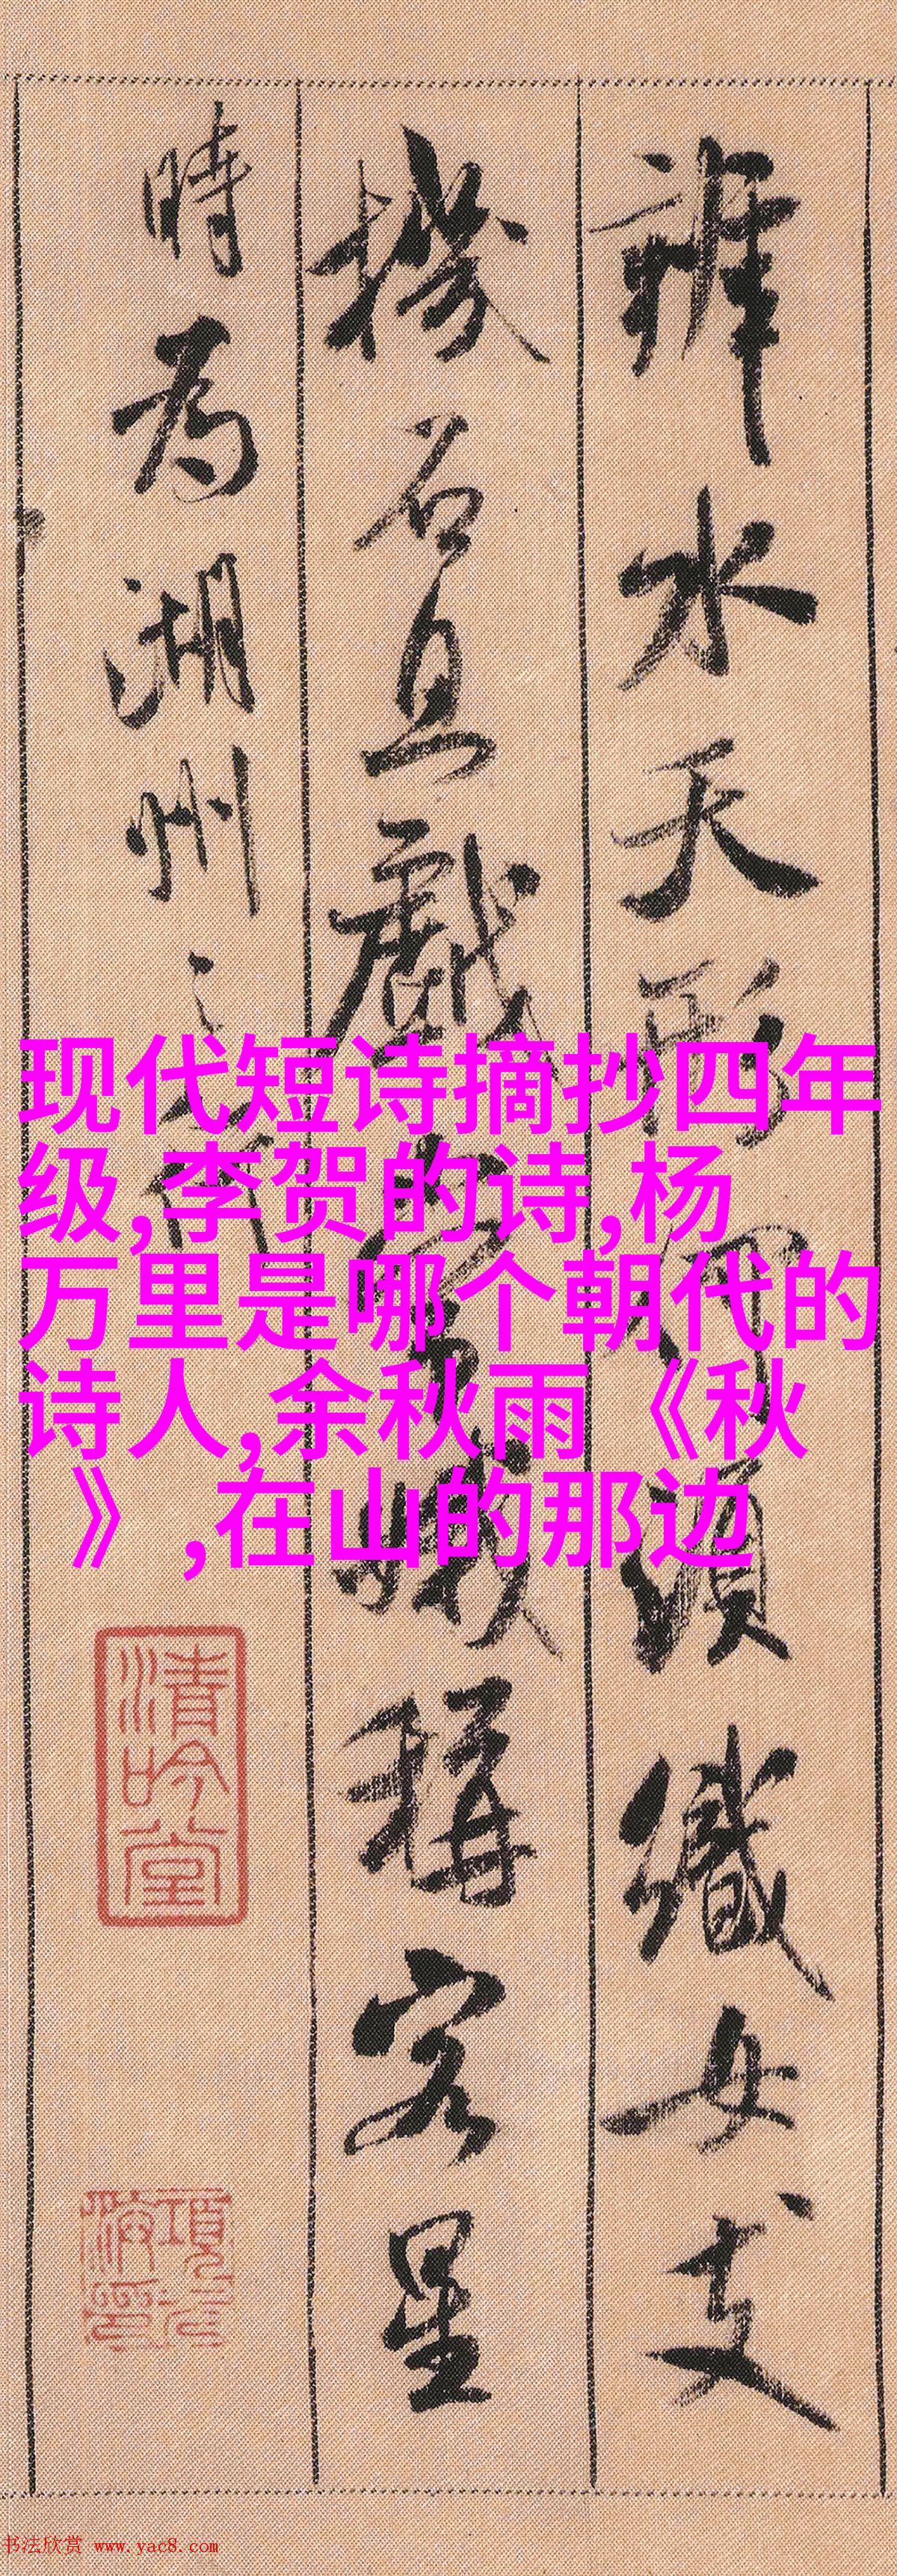 辨水天形何須織女支
機石且戲常娥稱客星
時為湖州之行
现代短诗摘抄四年
级,李贺的诗,杨
万里是哪个朝代的
诗人,余秋雨《秋
》,在山的那边
清吟堂
书法欣赏 www.yac8.com